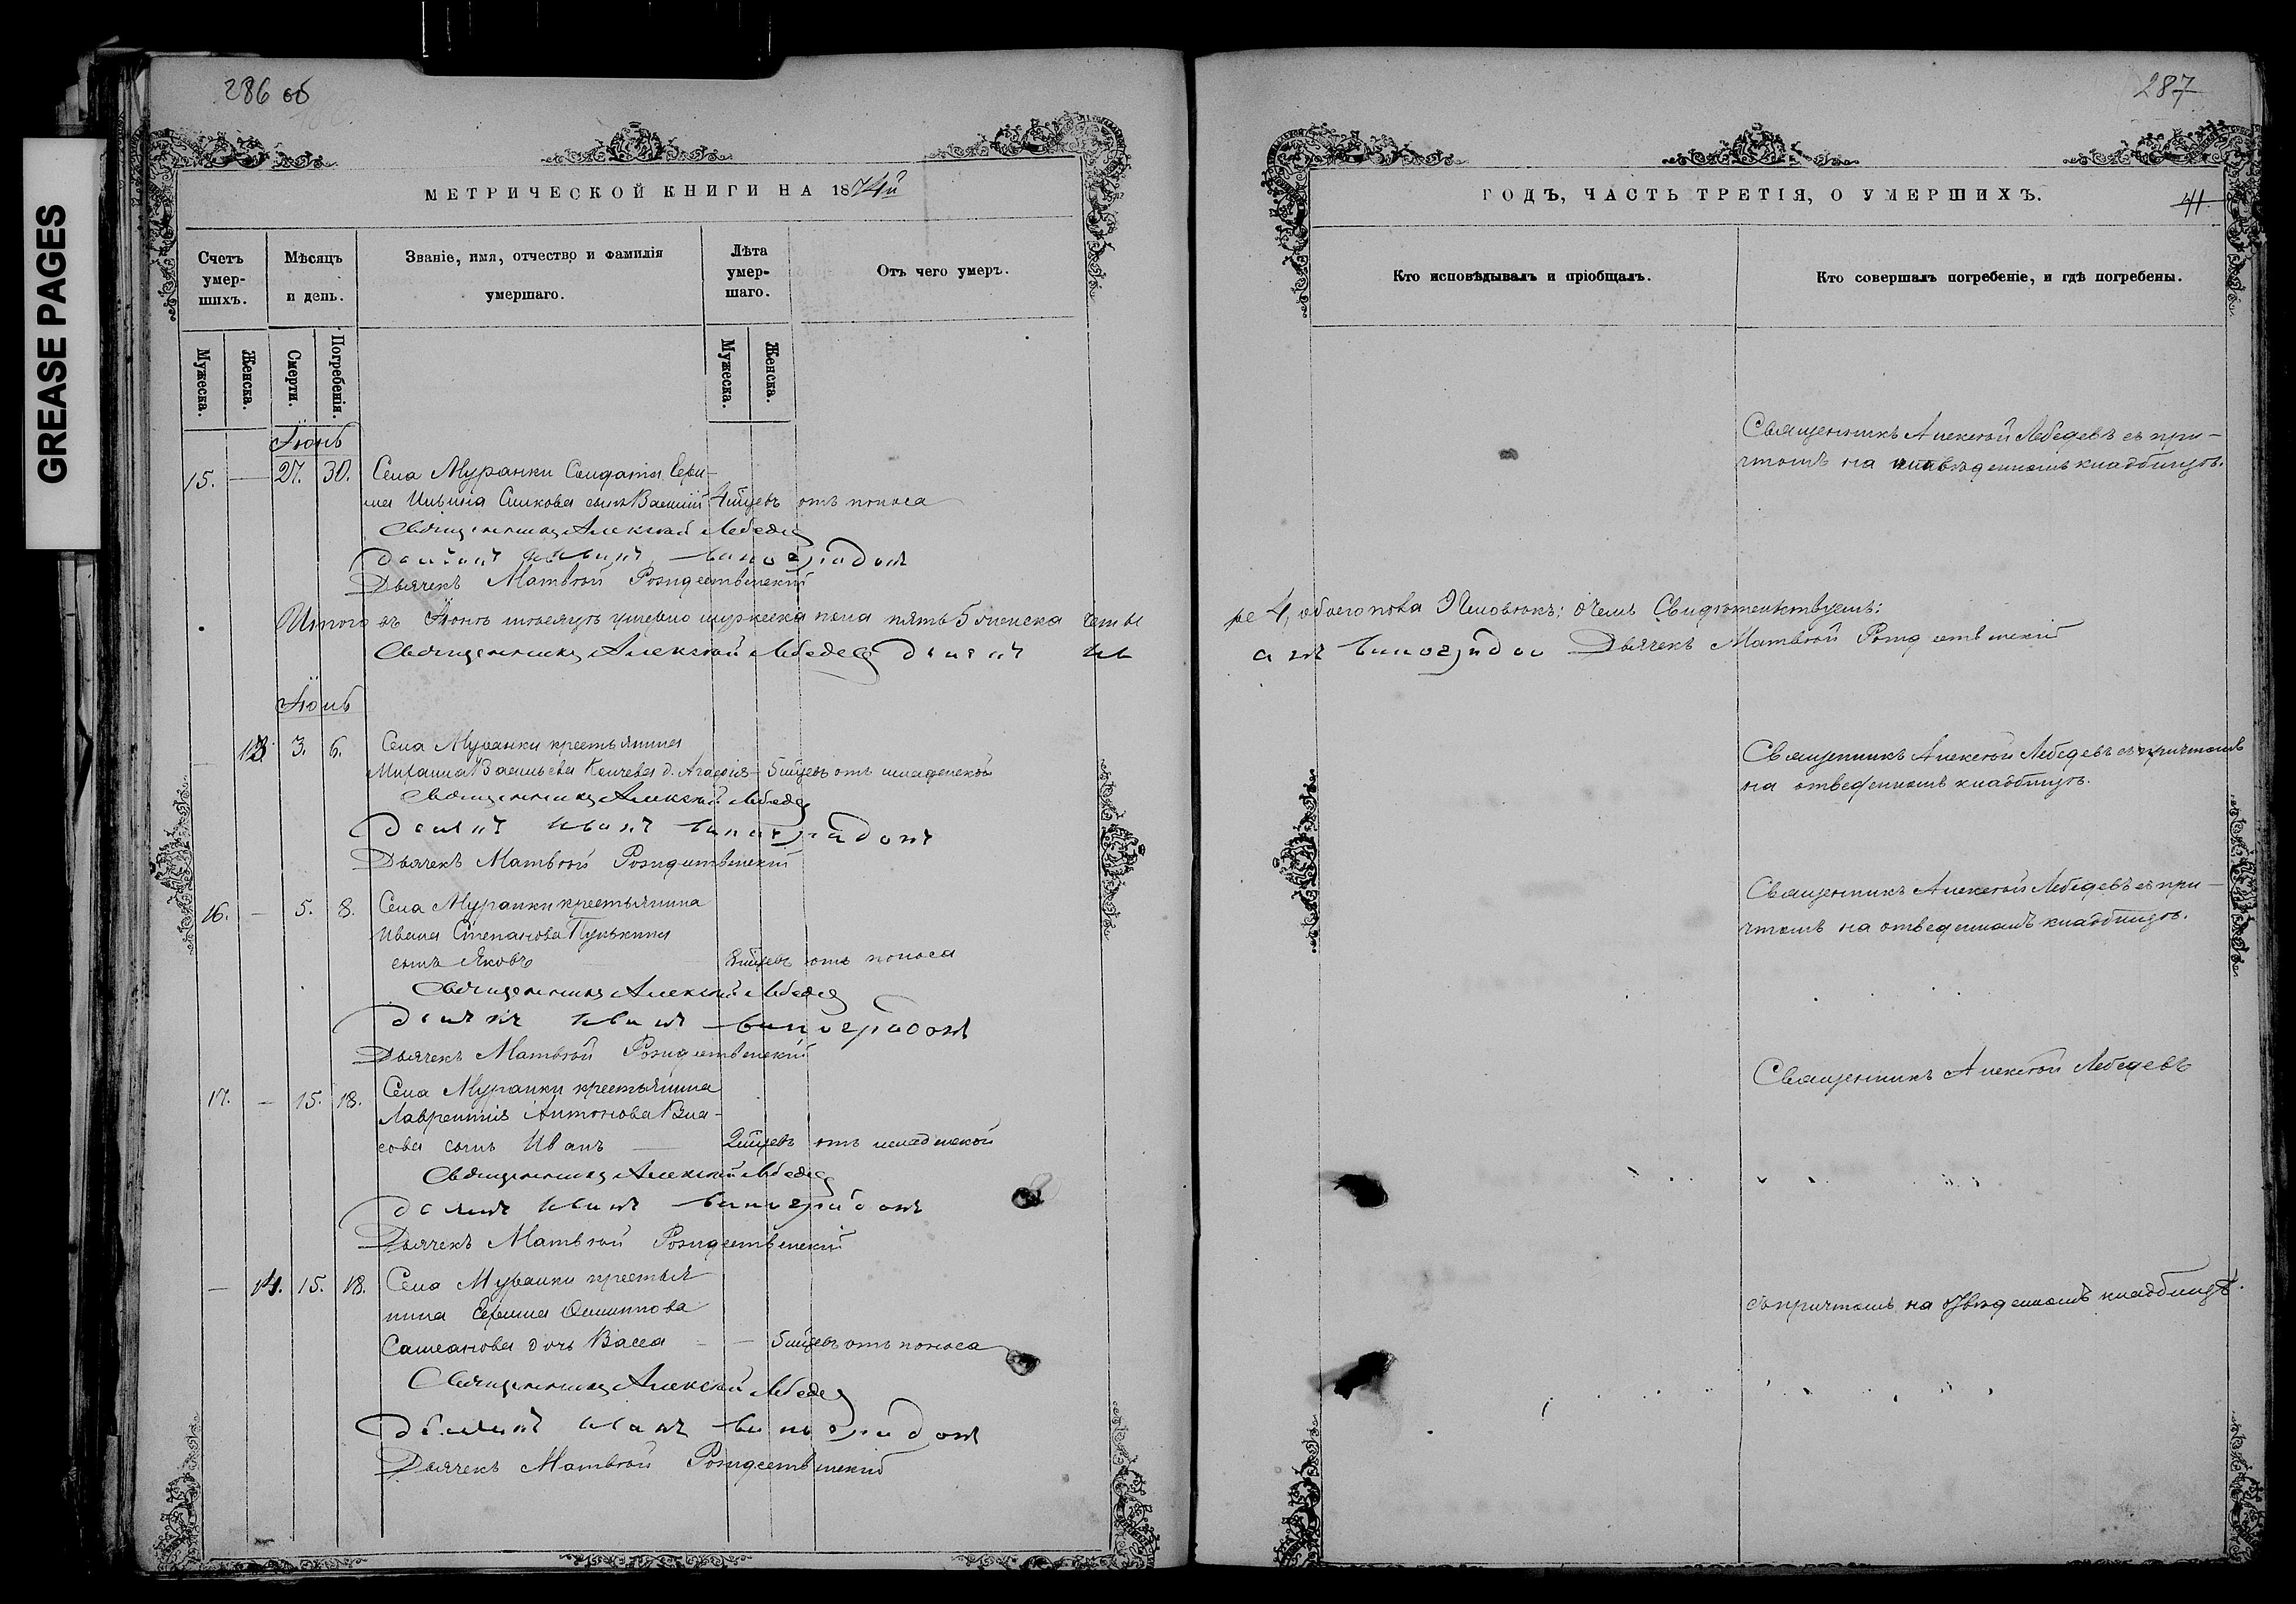 GREASE PAGES
286 об
МЕТРИЧЕСКОЙ КНИГИ НА 1874й
Счетъ умер-шихъ.
Мѣсяцъ и день.
Званіе, имя, отчество и фамилія умершаго.
Лѣта умер-шаго.
Отъ чего умеръ.
Мужеска.
Женска.
Смерти.
Погребенія.
Мужеска.
Женска.
Іюнь
15. — 27. 30. Села Муранки Солдата Ефи-
ма Ильина сынъ Василій 4 мѣцевъ отъ поноса
Священникъ Алексѣй Лебедев
Діаконъ Иванъ Виноградовъ
Дьячекъ Матвѣй Рождественскій
Итого въ Іюнѣ мѣсяцѣ умерло мужеска пола пять 5 женска четы
Священникъ Алексѣй Лебедев Діаконъ Ив
Іюль
13. 3. 6. Села Муранки крестьянина
Михаила Васильева д. Агафія — 5 мѣцевъ отъ младенской
Священникъ Алексѣй Лебедев
Діаконъ Иванъ Виноградовъ
Дьячекъ Матвѣй Рождественскій
16. — 5. 8. Села Муранки крестьянина
Ивана Степанова Пунькина
сынъ Яковъ 8 мѣцевъ отъ поноса
Священникъ Алексѣй Лебедев
Діаконъ Иванъ Виноградовъ
Дьячекъ Матвѣй Рождественскій
17. — 15. 18. Села Муранки крестьянина
Лаврентія Антонова Вла-
сова сынъ Иванъ — 2 мѣцевъ отъ младенской
Священникъ Алексѣй Лебедев
Діаконъ Иванъ Виноградовъ
Дьячекъ Матвѣй Рождественскій
— 14. 15. 18. Села Муранки крестья
нина Ефима Осиппова
дочь Васса — — 5 мѣцевъ отъ поноса
Священникъ Алексѣй Лебедев
Діаконъ Иванъ Виноградовъ
Дьячекъ Матвѣй Рождественскій
287
ГОДЪ, ЧАСТЬ ТРЕТІЯ, О УМЕРШИХЪ.
41.
Кто исповѣдывалъ и пріобщалъ.
Кто совершалъ погребеніе, и гдѣ погребены.
Священникъ Алексѣй Лебедевъ съ при-
чтомъ на кладбищѣ.
ре 4, обоего пола 9 человѣкъ; о чемъ Свидѣтельствуемъ:
анъ Виноградов Дьячекъ Матвѣй Рождественскій
Священникъ Алексѣй Лебедевъ съ причтомъ
на отведенномъ кладбищѣ.
Священникъ Алексѣй Лебедевъ съ при-
чтомъ на отведенномъ кладбищѣ.
Священникъ Алексѣй Лебедевъ
съ причтомъ на отведенномъ кладбищѣ.